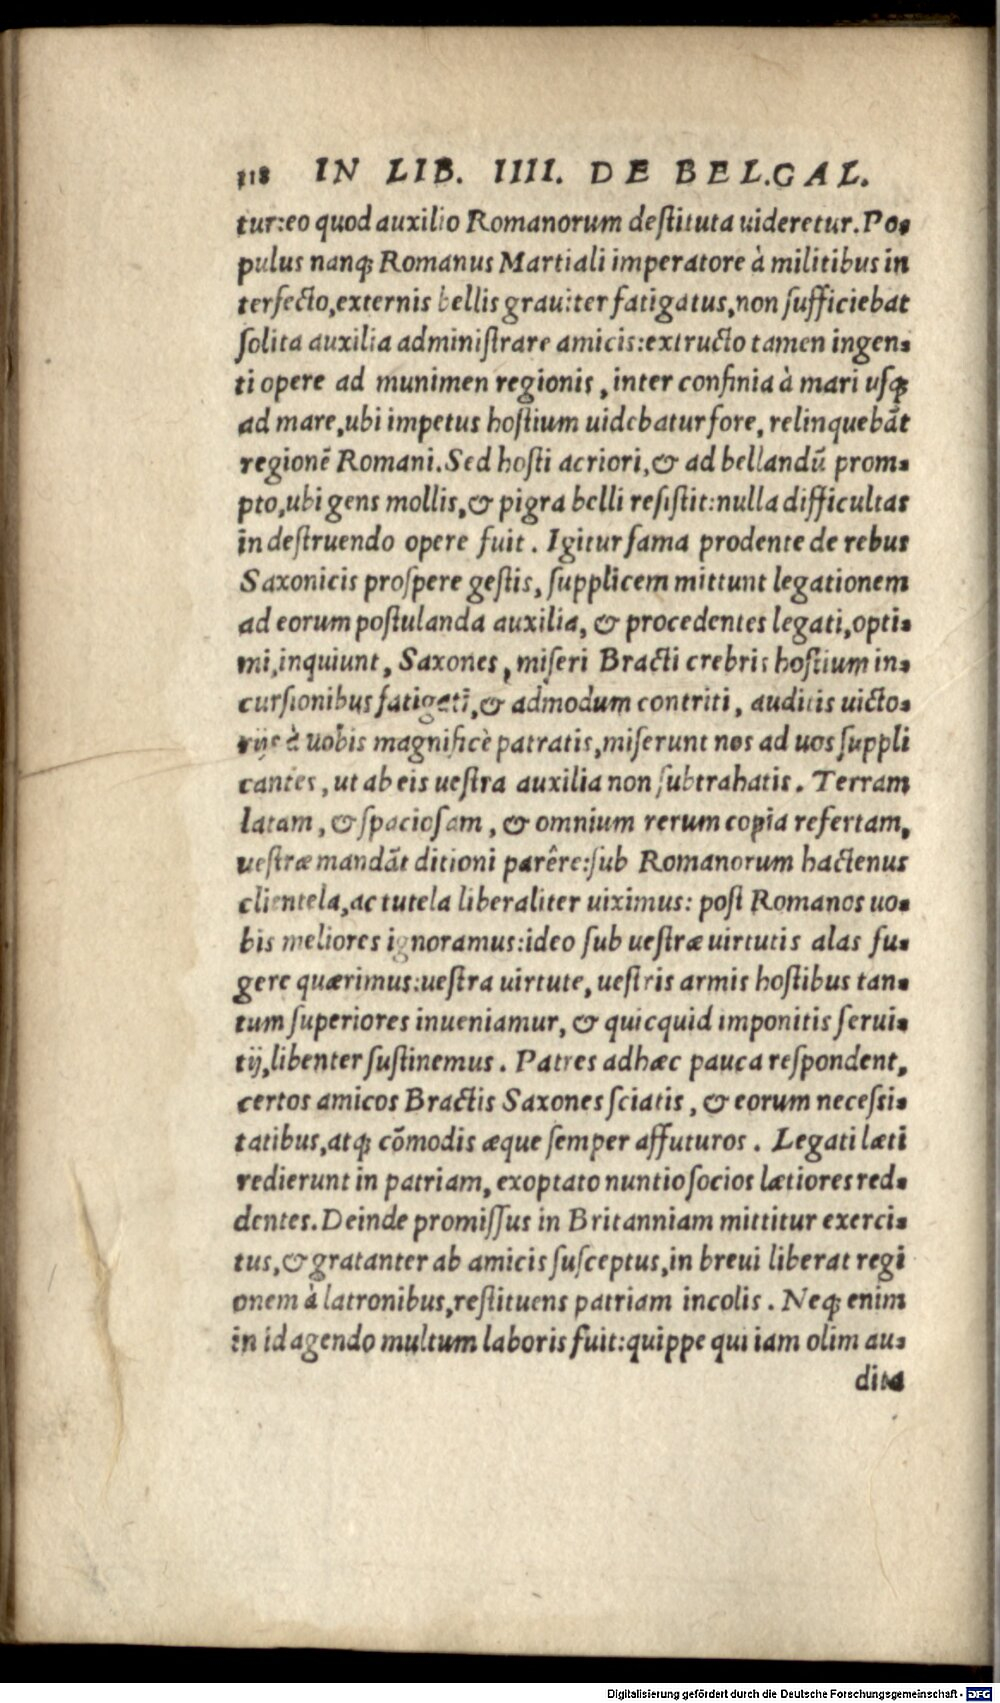 118 IN LIB. IIII. DE BEL.GAL.
tur:eo quod auxilio Romanorum deſtituta uideretur.Po-
pulus nanq; Romanus Martiali imperatore à militibus in
terfecto,externis bellis grauiter fatigatus,non ſufficiebat
ſolita auxilia adminiſtrare amicis:extructo tamen ingen-
ti opere ad munimen regionis, inter confinia à mari uſq;
ad mare,ubi impetus hoſtium uidebatur fore, relinquebãt
regionẽ Romani.Sed hoſti acriori,& ad bellandũ prom-
pto,ubi gens mollis,& pigra belli reſiſtit:nulla difficultas
in deſtruendo opere fuit. Igitur fama prodente de rebus
Saxonicis proſpere geſtis, ſupplicem mittunt legationem
ad eorum poſtulanda auxilia, & procedentes legati,opti-
mi,inquiunt, Saxones, miſeri Bracti crebris hoſtium in-
curſionibus fatigati,& admodum contriti, auditis uicto-
rijs à uobis magnificè patratis,miſerunt nos ad uos ſuppli
cantes, ut ab eis ueſtra auxilia non ſubtrahatis. Terram
latam, & ſpacioſam, & omnium rerum copia refertam,
ueſtræ mandãt ditioni parêre:ſub Romanorum hactenus
clientela,ac tutela liberaliter uiximus: poſt Romanos uo-
bis meliores ignoramus:ideo ſub ueſtræ uirtutis alas fu-
gere quærimus:ueſtra uirtute, ueſtris armis hoſtibus tan-
tum ſuperiores inueniamur, & quicquid imponitis ſerui-
tij,libenter ſuſtinemus. Patres adhæc pauca reſpondent,
certos amicos Bractis Saxones ſciatis, & eorum neceſſi-
tatibus,atq; cõmodis æque ſemper affuturos. Legati læti
redierunt in patriam, exoptato nuntio ſocios lætiores red-
dentes. Deinde promiſſus in Britanniam mittitur exerci-
tus,& gratanter ab amicis ſuſceptus,in breui liberat regi
onem à latronibus,reſtituens patriam incolis. Neq; enim
in id agendo multum laboris fuit:quippe qui iam olim au-
dita
Digitalisierung gefördert durch die Deutsche Forschungsgemeinschaft - DFG